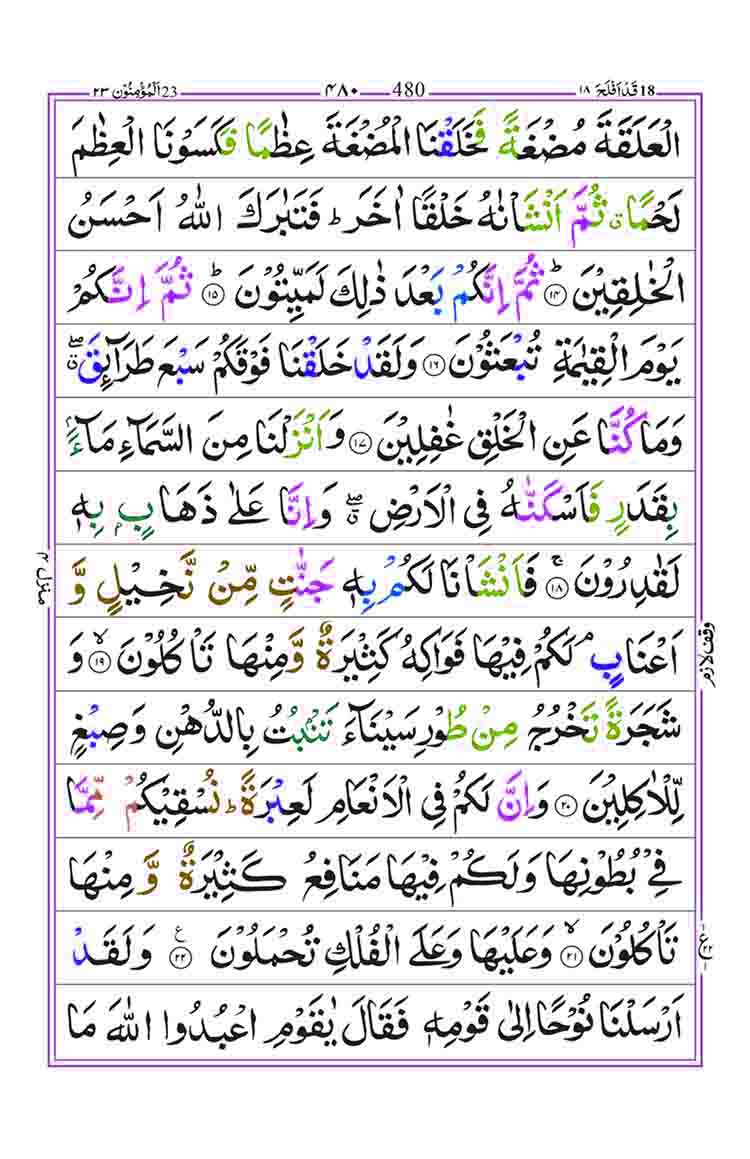 18 قَدْ اَفْلَحَ ١٨ 480 ۴۸۰ 23 اَلْمُؤْمِنُوْن ٢٣
الْعَلَقَةَ مُضْغَةً فَخَلَقْنَا الْمُضْغَةَ عِظٰمًا فَكَسَوْنَا الْعِظٰمَ
لَحْمًا ۗ ثُمَّ اَنْشَاْنٰهُ خَلْقًا اٰخَرَ ؕ فَتَبٰرَكَ اللّٰهُ اَحْسَنُ
الْخٰلِقِيْنَ ؕ ﴿۱۴﴾ ثُمَّ اِنَّكُمْ بَعْدَ ذٰلِكَ لَمَيِّتُوْنَ ؕ ﴿۱۵﴾ ثُمَّ اِنَّكُمْ
يَوْمَ الْقِيٰمَةِ تُبْعَثُوْنَ ﴿۱۶﴾ وَلَقَدْ خَلَقْنَا فَوْقَكُمْ سَبْعَ طَرَآئِقَ ۖ ق
وَمَا كُنَّا عَنِ الْخَلْقِ غٰفِلِيْنَ ﴿۱۷﴾ وَاَنْزَلْنَا مِنَ السَّمَآءِ مَآءًۢ
بِقَدَرٍ فَاَسْكَنّٰهُ فِى الْاَرْضِ ۖ ق وَاِنَّا عَلٰى ذَهَابٍۭ بِهٖ
لَقٰدِرُوْنَ ۚ ﴿۱۸﴾ فَاَنْشَاْنَا لَكُمْ بِهٖ جَنّٰتٍ مِّنْ نَّخِيْلٍ وَّ
اَعْنَابٍ ۘ لَكُمْ فِيْهَا فَوَاكِهُ كَثِيْرَةٌ وَّمِنْهَا تَاْكُلُوْنَ ۙ ﴿۱۹﴾ وَ
شَجَرَةً تَخْرُجُ مِنْ طُوْرِ سَيْنَآءَ تَنْۢبُتُ بِالدُّهْنِ وَصِبْغٍ
لِّلْاٰكِلِيْنَ ﴿۲۰﴾ وَاِنَّ لَكُمْ فِى الْاَنْعَامِ لَعِبْرَةً ؕ نُسْقِيْكُمْ مِّمَّا
فِىْ بُطُوْنِهَا وَلَكُمْ فِيْهَا مَنَافِعُ كَثِيْرَةٌ وَّمِنْهَا
تَاْكُلُوْنَ ۙ ﴿۲۱﴾ وَعَلَيْهَا وَعَلَى الْفُلْكِ تُحْمَلُوْنَ ع ﴿۲۲﴾ وَلَقَدْ
اَرْسَلْنَا نُوْحًا اِلٰى قَوْمِهٖ فَقَالَ يٰقَوْمِ اعْبُدُوا اللّٰهَ مَا
منزل ۴
وقف لازم
ع ۲۲